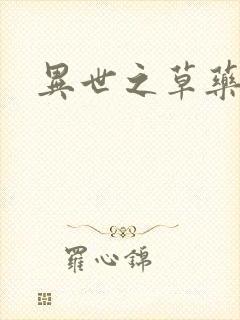 異世之草藥
羅心錦